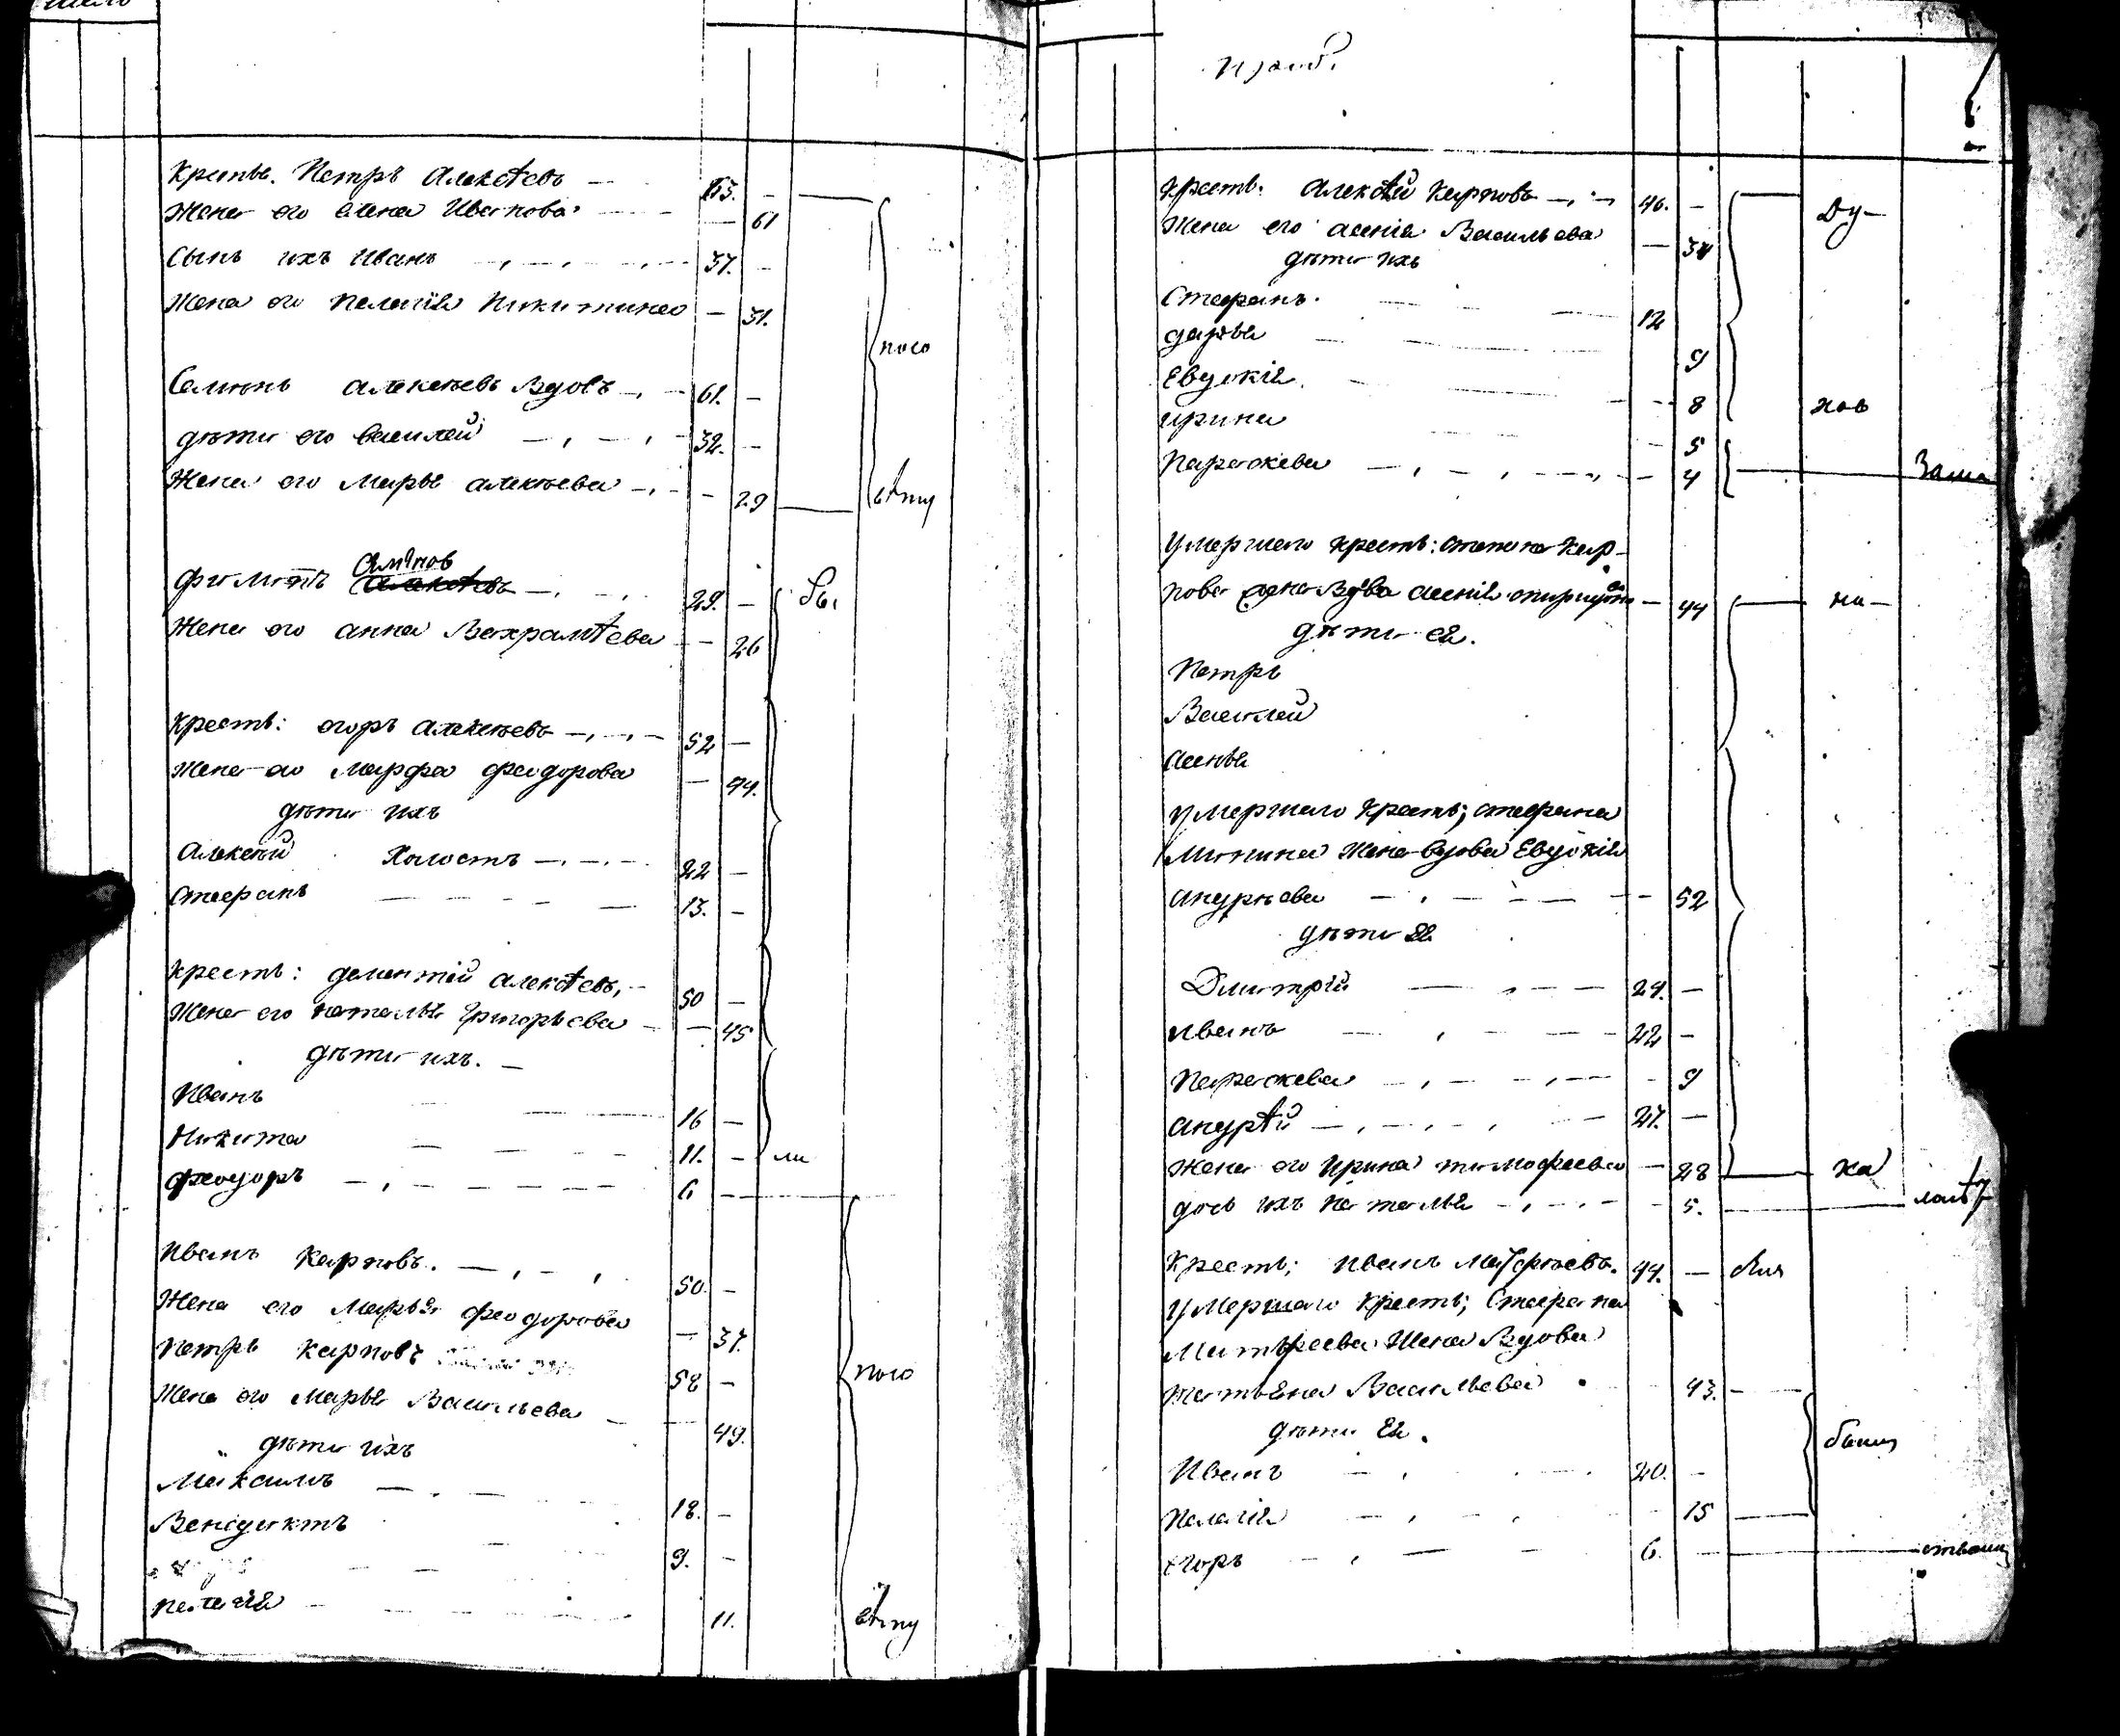 Крестьн. Петръ Алексѣевъ — 63. —
Жена его Елена Иванова — 61
Сынъ ихъ Иванъ — 37. —
Жена его Пелагія Никитина — 31.
по со
Семіонъ Алексѣевъ вдовъ — 61. —
дѣти его Василей — 32. —
Жена его Марья Алексѣева — 29
Филипъ — 29. — бы
Жена его Анна Вахрамѣева — 26
Кресть: Егоръ Алексѣевъ — 52 —
Жена его Марфа Феодорова — 44.
дѣти ихъ
Алексѣй Холостъ — 22 —
Стефанъ — 13. —
Кресть: Дементій Алексѣевъ, — 50 —
Жена его Наталья Григорьева — 45
дѣти ихъ. —
Иванъ — 16 —
Никита — 11. — ли
Феодоръ — 6 —
Иванъ Карповъ. — 50. —
Жена его Марья Феодорова — 37.
Петръ Карповъ 58 —
Жена его Марья Васильева — 49.
дѣти ихъ
Максимъ — 18. —
Венедиктъ — 9. —
Пелагія — 11.
Кресть: Алексѣй Карповъ — 46. — Ду-
Жена его Аксинія Васильева — 34
дѣти ихъ
Стефанъ. — 12
Дарья — 9
Евдокія — 8 хов
Ирина — 5
Параскева — 4 Зама
Умершаго кресть: Степана Кар-
пова жена вдова Аксинія — 44 на-
дѣти ея.
Петръ
Василей
Аксинья
Умершаго кресть; Стефана
Минина Жена вдова Евдокія
Ануфріева — 52
дѣти Ея
Дмитрій — 24. —
Иванъ — 22 —
Параскева — 9
Ануфрѣй — 27. —
Жена его Ирина Тимофеева — 28 ха
дочь ихъ Наталья — 5.
Кресть; Иванъ Матфѣевъ. 44. —
Умершаго кресть; Стефана
Матфеева Жена вдова
Татьяна Васильева 43. —
дѣти Ея.
Иванъ — 20. —
Пелагія — 15
Егоръ — 6. —